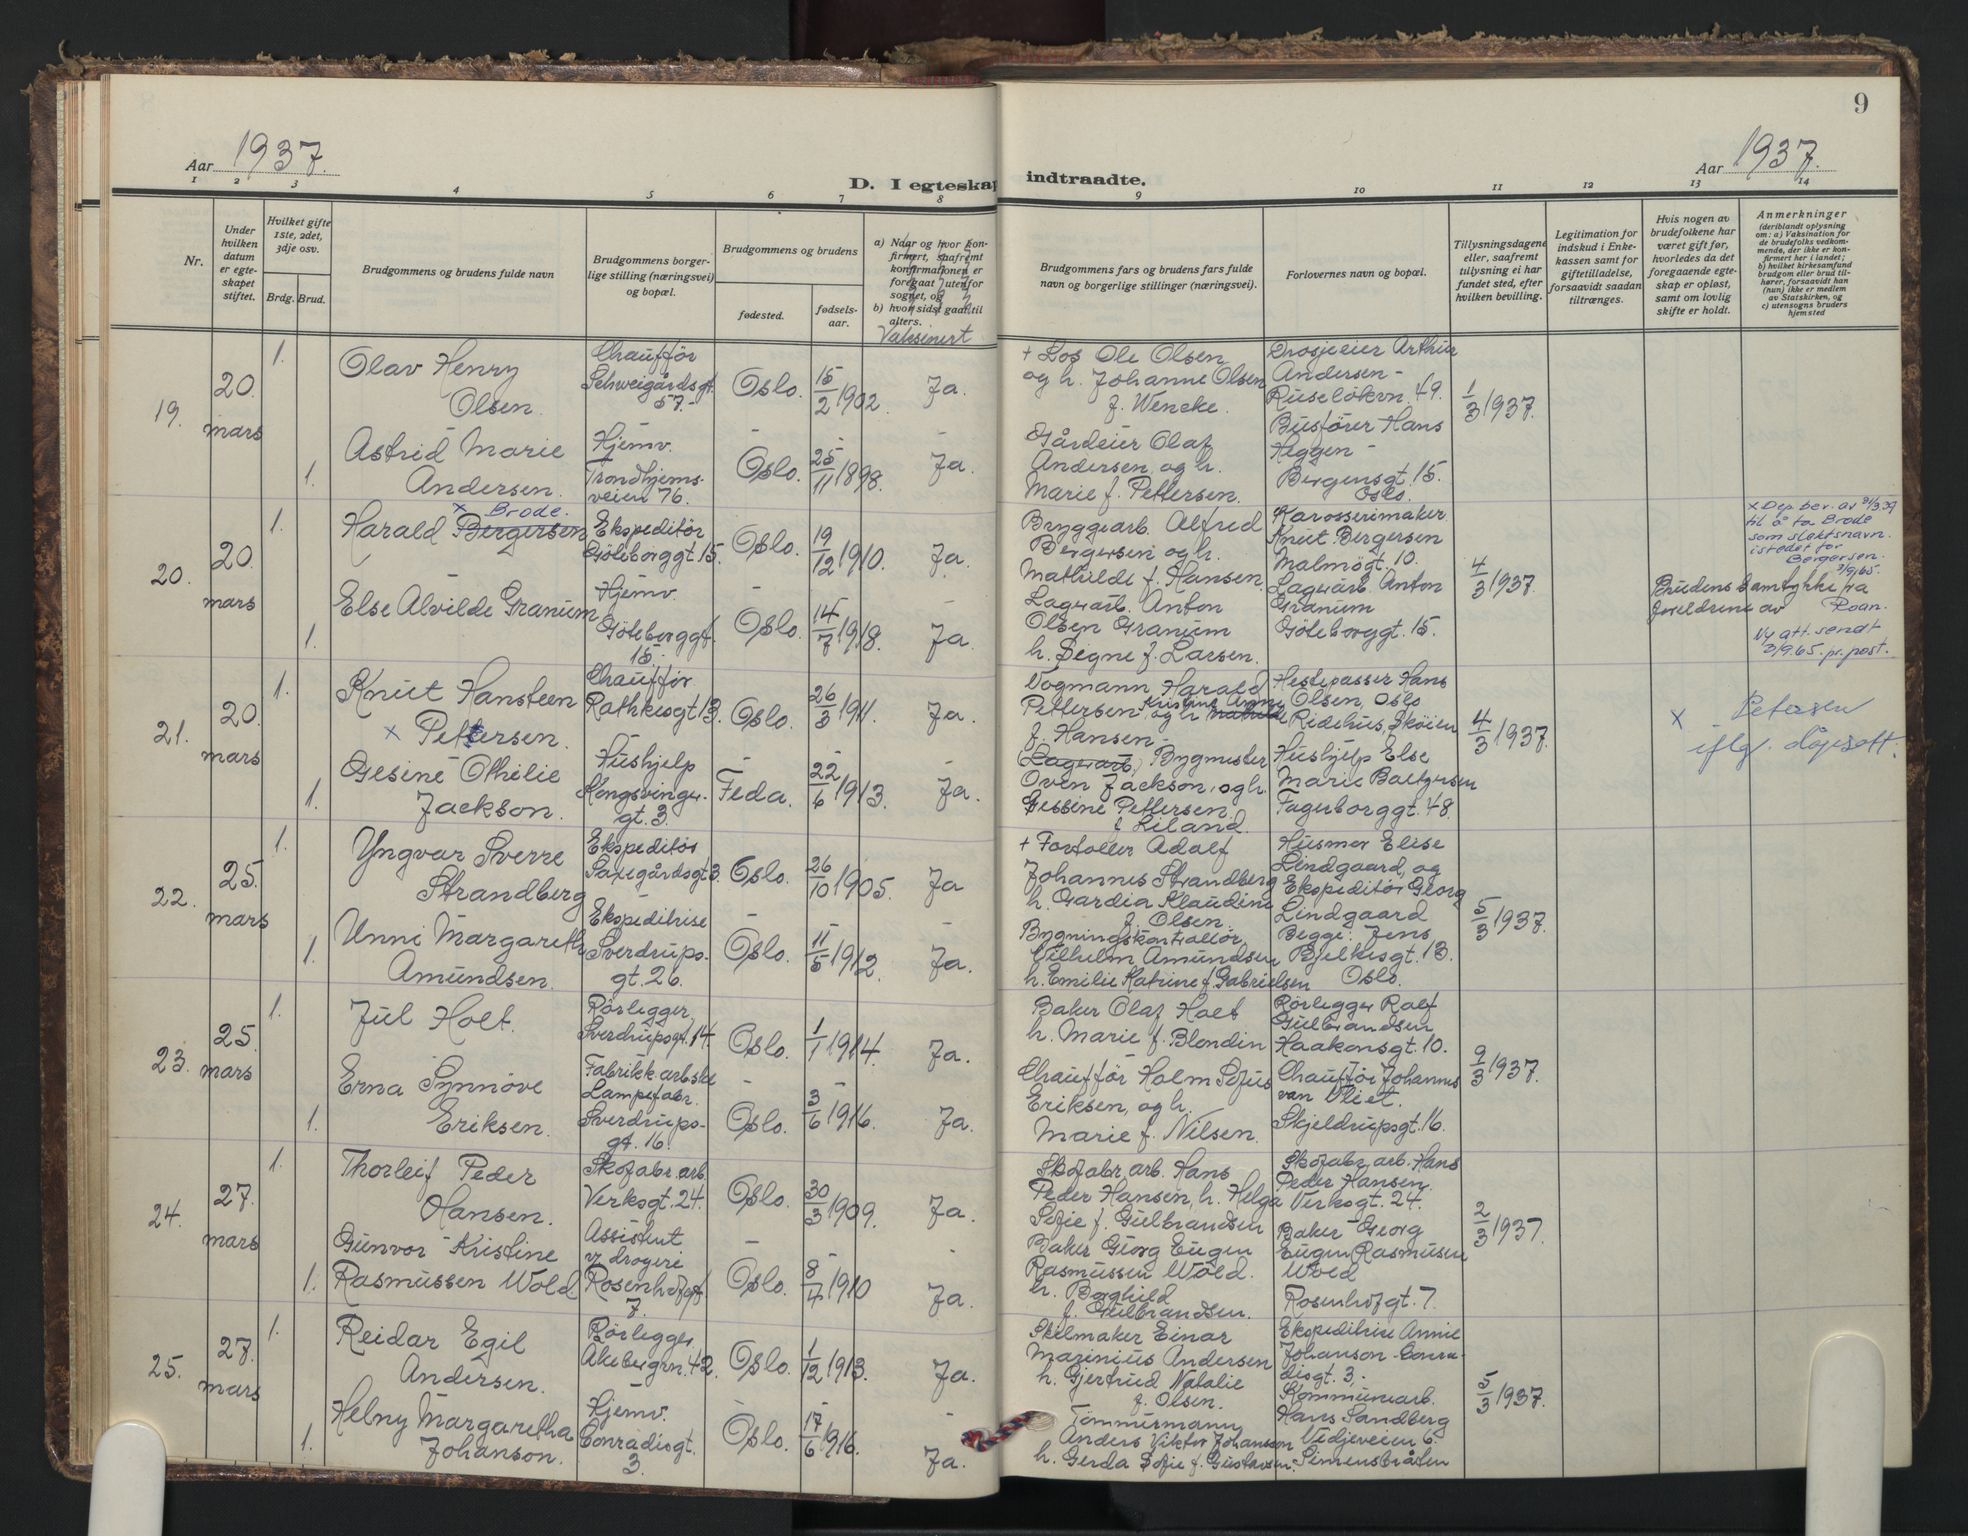 9
Aar 1937.
Aar 1937.
D. I egteskap indtraadte.
1 2 3 4 5 6 7 8 9 10 11 12 13 14
Nr.
Under hvilken datum er egteskapet stiftet.
Hvilket gifte 1ste, 2det, 3dje osv.
Brdg. Brud.
Brudgommens og brudens fulde navn
Brudgommens borgerlige stilling (næringsvei) og bopæl.
Brudgommens og brudens
fødested.
fødselsaar.
a) Naar og hvor konfirmert, saafremt konfirmationen er foregaat utenfor sognet, og
b) hvor sidst gaat til alters.
Vaksinert
Brudgommens fars og brudens fars fulde navn og borgerlige stillinger (næringsvei).
Forlovernes navn og bopæl.
Tillysningsdagene eller, saafremt tillysning ei har fundet sted, efter hvilken bevilling.
Legitimation for indskud i Enkekassen samt for giftetilladelse, forsaavidt saadan tiltrænges.
Hvis nogen av brudefolkene har været gift før, hvorledes da det foregaaende egteskap er opløst, samt om lovlig skifte er holdt.
Anmerkninger
(deriblandt oplysning om: a) Vaksination for de brudefolks vedkommende, der ikke er konfirmert her i landet; b) hvilket kirkesamfund brudgom eller brud tilhører, forsaavidt han (hun) ikke er medlem av Statskirken, og c) utensogns bruders hjemsted
19. 20. mars
1. Olav Henry Olsen.
Chauffør
Schweigårdsgt. 57.-
Oslo. 15/2 1902. Ja.
+ Los Ole Olsen
og h. Johanne Olsen
f. Wencke.
Drosjeeier Arthur
Andersen -
Ruseløkvn. 49.
1/3 1937.
1. Astrid Marie
Andersen.
Hjemv.
Trondhjems-
veien 76.
Oslo. 25/11 1898. Ja.
Gårdeier Olaf
Andersen, og h.
Marie f. Pettersen.
Busfører Hans
Haggen -
Bergensgt. 15.
Oslo.
20. 20. mars
x Brode.
1. Harald Bergersen
Ekspeditør
Göteborggt. 15.
Oslo. 19/12 1910. Ja.
Bryggearb. Alfred
Bergersen og h.
Mathilde f. Hansen.
Karosserimaker
Knut Bergersen
Malmøgt. 10.
4/3 1937.
x Dep. bev. av 21/3.39
til å ta Brode
som slektsnavn.
istedet for
Bergersen.
3/9.65.
1. Else Alvilde Granum
Hjemv.
Göteborggt.
15.
Oslo. 14/7 1918. Ja.
Lagerarb. Anton
Olsen Granum
h. Signe f. Larsen.
Lagerarb. Anton
Granum
Göteborggt. 15.
Brudens samtykke fra
foreldrene av Roan.
Ny att. sendt
3/9.65. pr. post.
21. 20. mars
1. Knut Hansteen
x Pettersen.
Chauffør
Rathkesgt. 13.
Oslo. 26/3 1911. Ja.
Vogmann Harald
Pettersen, og h. Mathilde
Kristine
f. Hansen -
Hestepasser Hans
Olsen, Oslo
Ridehus, Skøien
4/3 1937.
x Petersen
iflg. dåpsatt.
1. Gesine Othelie
Jackson.
Hushjelp
Kongsvinger-
gt. 3.
Feda. 22/6 1913. Ja.
Lagerarb. Bygmester
Oven Jackson, og h.
Gessine Pettersen.
f. Liland.
Hushjelp Else
Marie Baltzersen
Fagerborggt. 48.
22. 25. mars
1. Yngvar Sverre
Strandberg
Ekspeditør
Saxegårdsgt. 3.
Oslo. 26/10 1905. Ja
+ Fortoller Adolf
Johannes Strandberg
h. Gardia Klaudine
f. Olsen.
Husmor Elise
Lindgaard, og
Ekspeditør Georg
Lindgaard
Begge: Jens
Bjelkesgt. 13.
Oslo.
5/3 1937.
1. Unni Margareth
Amundsen.
Ekspeditrise
Sverdrups-
gt. 26.
Oslo. 11/5 1912. Ja.
Bygningskontrollør
Vilhelm Amundsen
h. Emilie Katrine f. Gabrielsen
23. 25. mars
1. Jul Holt.
Rørlegger,
Sverdrupsgt. 14.
Oslo. 1/1 1914. Ja.
Baker Olaf Holt
h. Marie f. Blondin
Rørlegger Ralf
Gulbrandsen
Haakonsgt. 10.
9/3 1937.
1. Erna Synnøve
Eriksen.
Fabrikkarbske
Lampefabr.
Sverdrups-
gt. 16.
Oslo. 3/6 1916. Ja.
Chauffør Holm Sofus
Eriksen, og h.
Marie f. Nilsen.
Chauffør Johannes
van Vliet.
Skjeldrupsgt. 16.
24. 27. mars
1. Thorleif Peder
Hansen.
Skofabr. arb.
Verksgt. 24.
Oslo. 30/3 1909. Ja.
Skofabr. arb. Hans
Peder Hansen, h. Helga
Sofie f. Gulbrandsen
Skofabr. arb. Hans
Peder Hansen.
Verksgt. 24.
2/3 1937.
1. Gunvor Kristine
Rasmussen Wold
Assistent
v/ drogeri
Rosenhofgt
7.
Oslo. 8/4 1910 Ja.
Baker Georg Eugen
Rasmussen Wold.
h. Borghild
f. Gulbrandsen.
Baker Georg
Eugen Rasmussen
Wold
Rosenhofgt. 7.
25. 27. mars
1. Reidar Egil
Andersen.
Rørlegger
Akebergvn. 42.
Oslo. 1/12 1913. Ja.
Skilmaker Einar
Marinius Andersen
h. Gjertrud Natalie
f. Olsen.
Ekspeditrise Annie
Johanson Conra-
disgt. 3.
5/3 1937.
1. Helny Margaretha
Johanson.
Hjemv.
Conradisgt.
3.
Oslo. 17/6 1916. Ja.
Tømmermann
Anders Viktor Johansson
h. Gerda Sofie f. Gustavsen.
Kommunearb.
Hans Sandberg
Vidjeveien 6.
Simensbråten